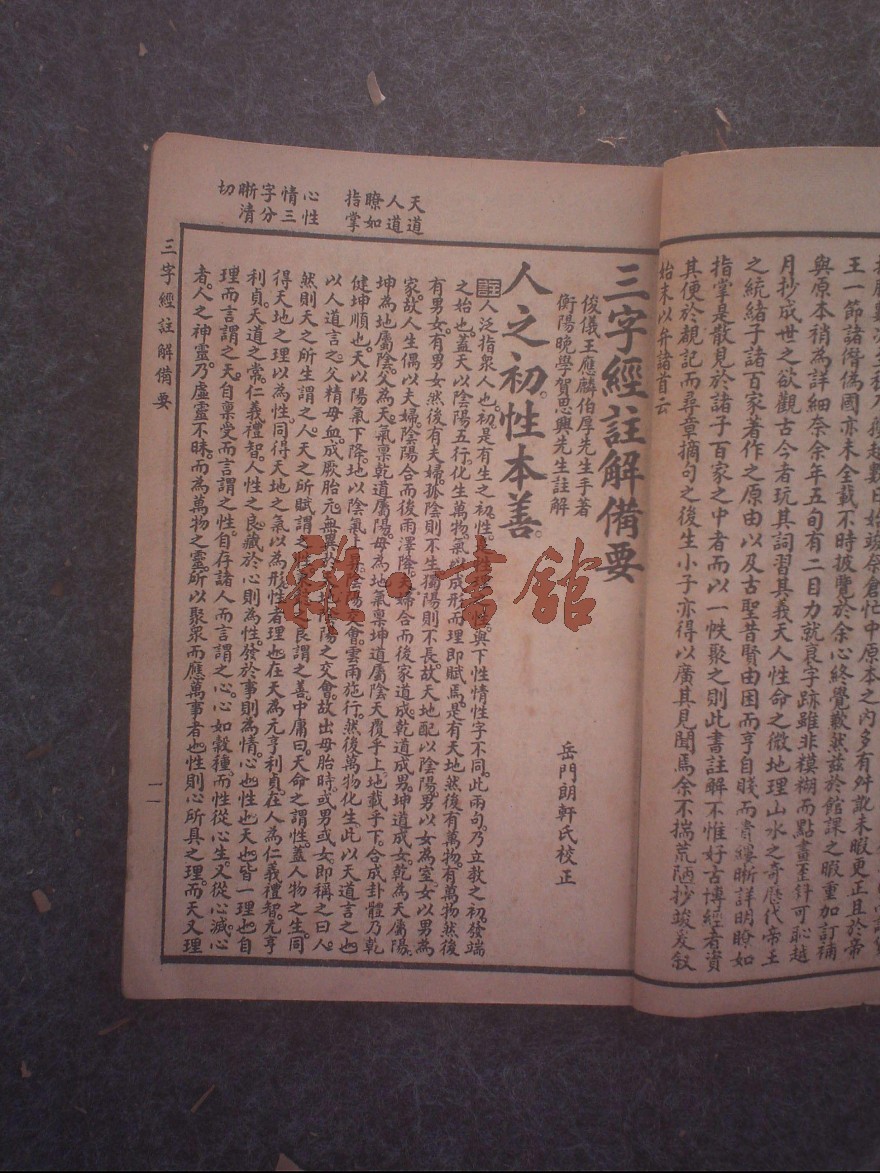 王一節諸僭偽國亦未全載不時披覽於余心終覺歉然茲於館課之暇重加訂補
與原本稍為詳細奈余年五旬有二目力就衰字跡雖非糢糊而點畫
可恥越
月抄成世之欲觀古今者玩其詞習其義天人性命之微地理山水之奇歷代帝王
之統緒子諸百家著作之原由以及古聖昔賢由困而亨自賤而貴縷晰詳明瞭如
指掌是散見於諸子百家之中者而以一帙聚之則此書註解不惟好古博經者資
其便於觀記而尋章摘句之後生小子亦得以廣其見聞焉余不揣荒陋抄竣爰叙
始末以弁諸首云
天道
人道
瞭如
指掌
心性
情三
字分
晰清
切
三字經註解備要
俊儀王應麟伯厚先生手著
衡陽晚學賀思興先生註解
岳門朗軒氏校正
人之初。性本善。
註人泛指眾人也。初是有生之初。性
與下性情性字不同。此兩句。乃立教之初。發端
之始也。蓋天以陰陽五行。化生萬物。氣以成形。而理即賦焉。是有天地。然後有萬物。有萬物然後
有男女。有男女。然後有夫婦。孤陰則不生。獨陽則不長。故天地配以陰陽。男以女為室。女以男為
家。故人生偶以夫婦。陰陽合而後雨澤降。夫婦合而後家道成。乾道成男。坤道成女。乾為天屬陽。
坤為地屬陰。父為天。氣禀乾道屬陽。母為地。氣禀坤道屬陰。天覆乎上。地載乎下。合成卦體。乃乾
健坤順也。天以陽氣下降。地以陰氣上
會。雲雨施行。然後萬物化生。此以天道言之也
以人道言之。父精母血。成厥胎元。無異於
陰陽之交會。故出母胎時。或男或女。即稱之曰人。
然則天之所生謂之人。天之所賦謂之
良謂之善。中庸曰。天命之謂性。蓋人物之生。同
得天地之理以為性。同得天地之氣以為形。性者理也。在天為元亨利貞。在人為仁義禮智。元亨
利貞。天道之常。仁義禮智。人性之良。藏於心則為性。發於事則為情。心也性也天也。皆一理也。自
理而言謂之天。自禀受而言謂之性。自存諸人而言謂之心。心如穀種。而性從心生。又從心滅。心
者。人之神靈。乃虛靈不昧。而為萬物之靈。所以聚衆而應萬事者也。性則心所具之理。而天又理
三字經註解備要
一
雜·書館